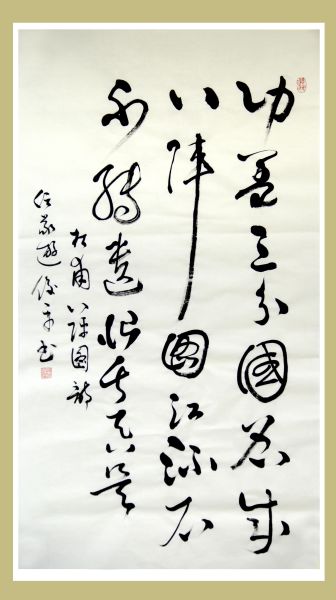 功蓋三分國名成
八陣圖江流石
不轉遺恨失吞吳
杜甫八陣圖詩
書